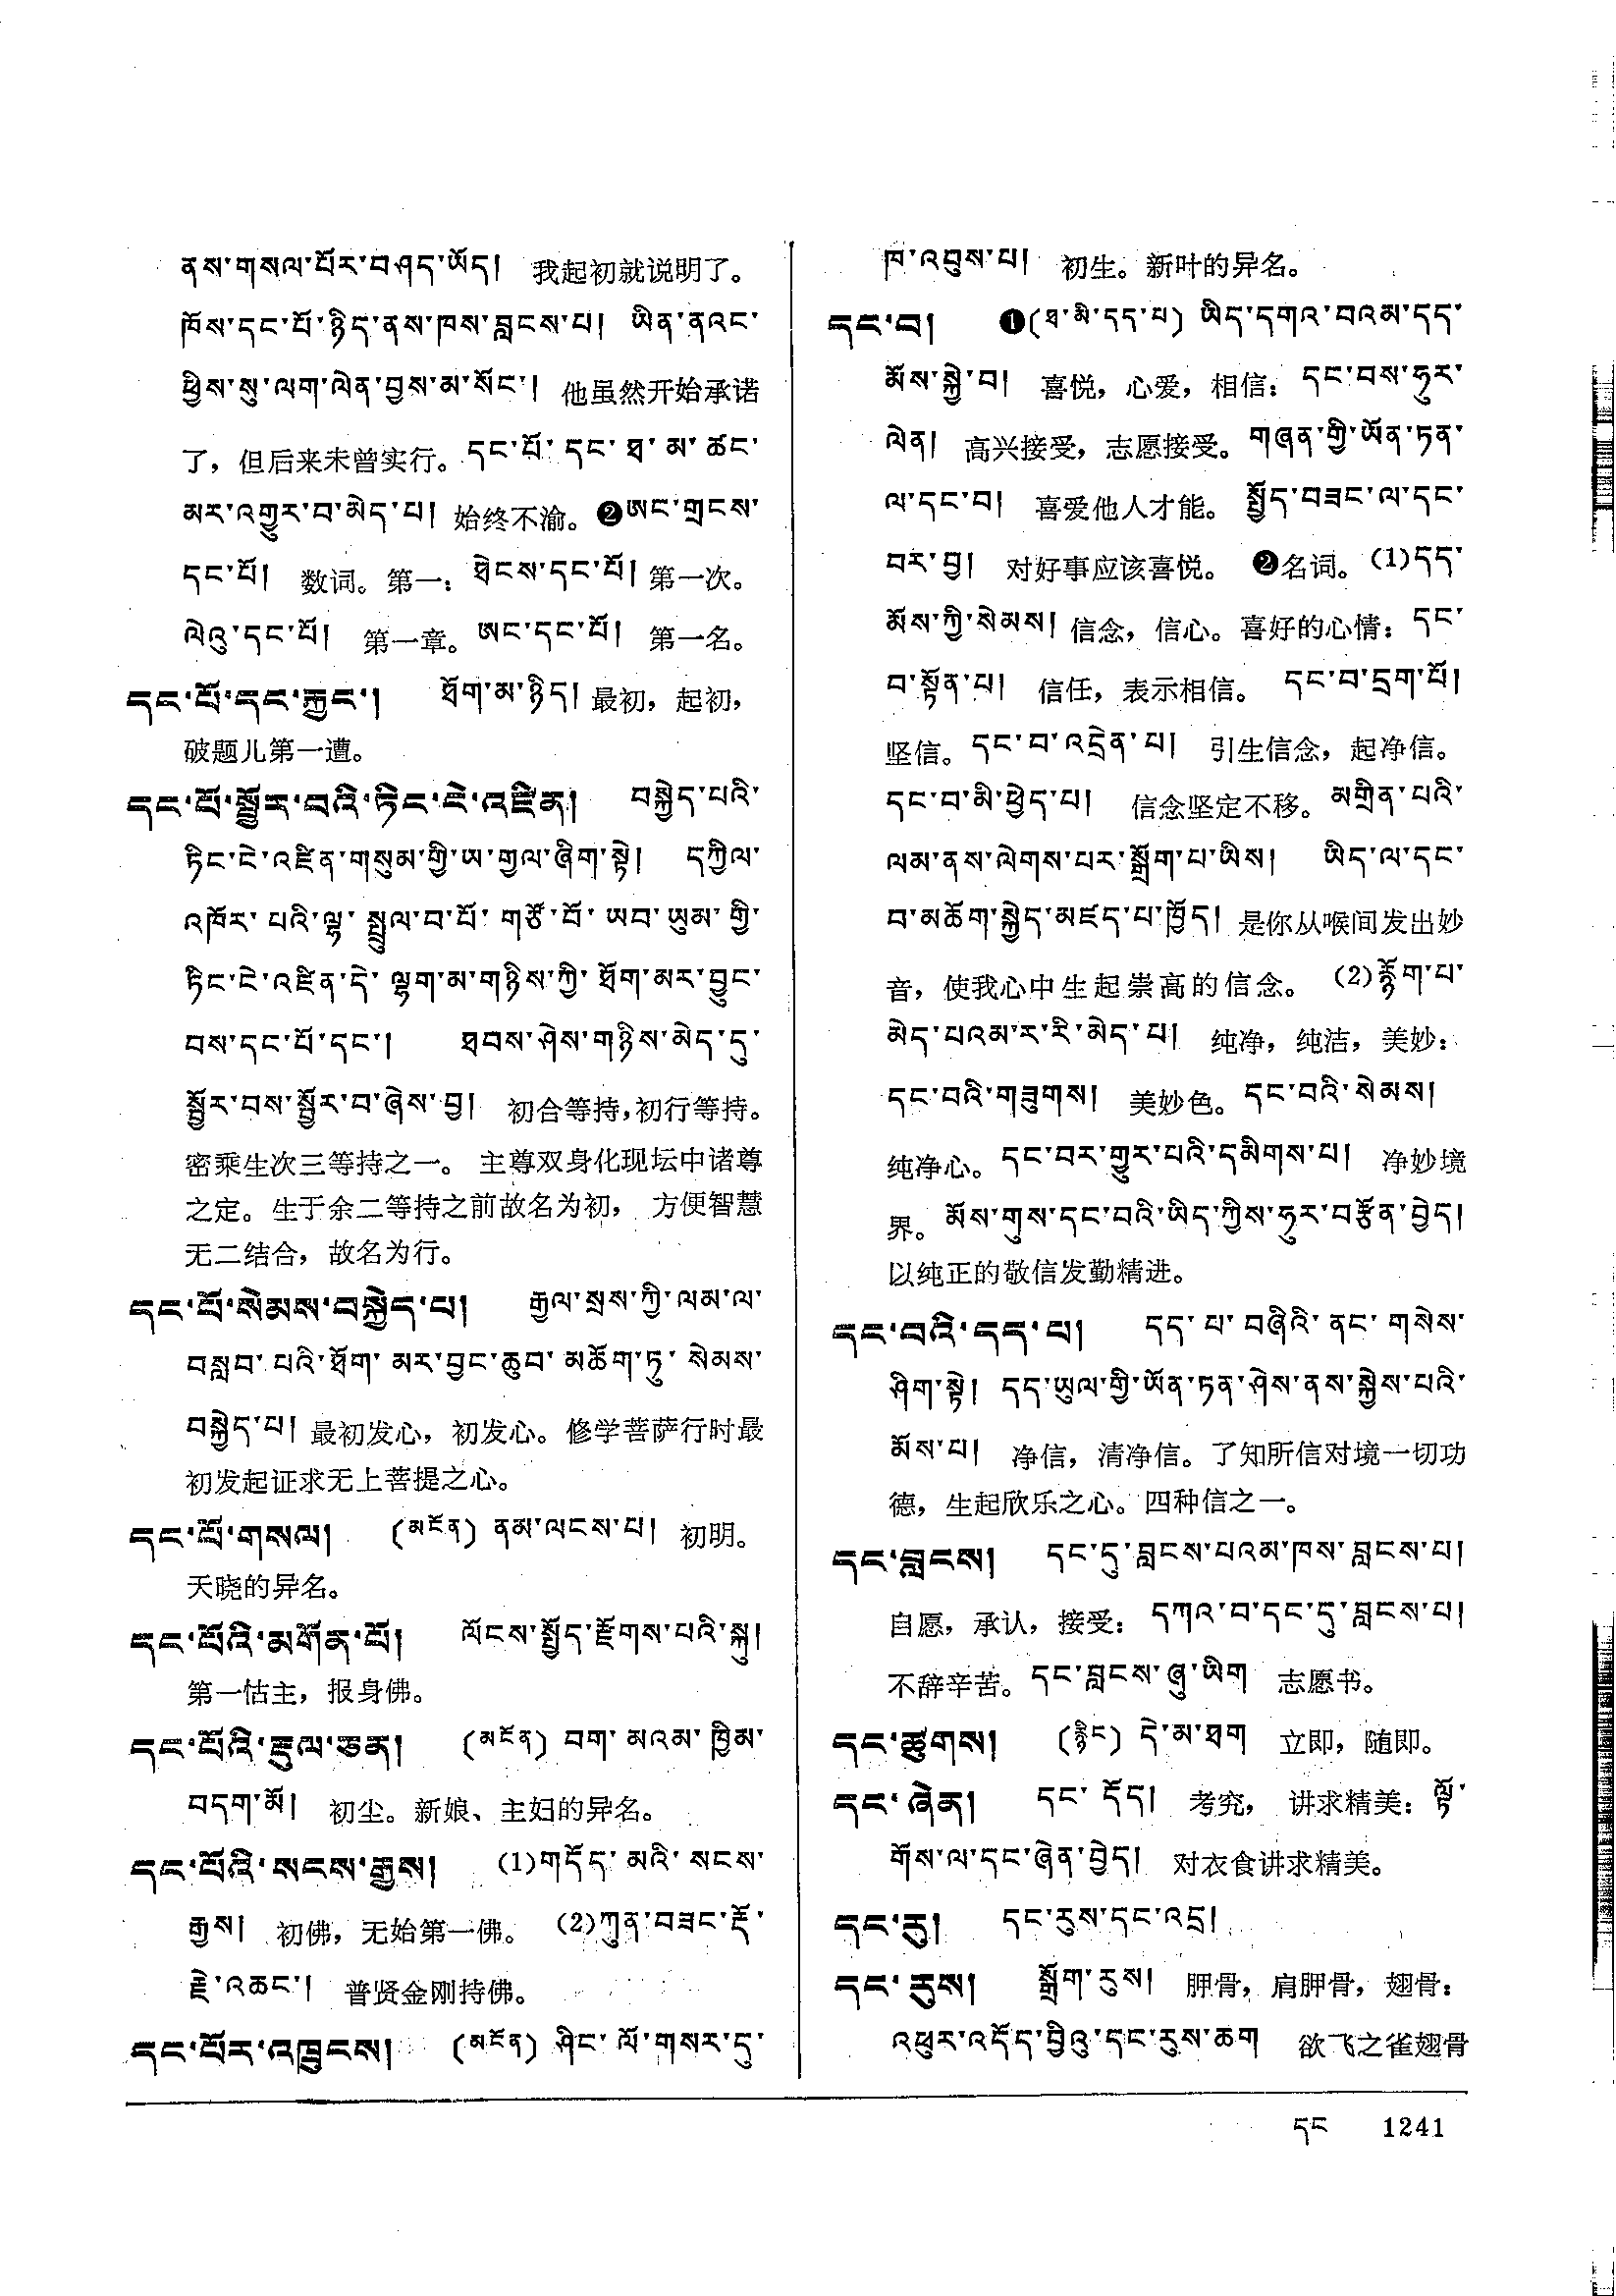 ནས་གསལ་པོར་བཤད་ཡོད། 我起初就说明了。
ཁོས་དང་པོ་ཉིད་ནས་ཁས་བླངས་པ། ཡིན་ནའང་
ཕྱིས་སུ་ལག་ལེན་བྱས་མ་སོང་། 他虽然开始承诺
了，但后来未曾实行。དང་པོ་དང་ཐ་མ་ཚང་
མར་འགྱུར་བ་མེད་པ། 始终不渝。❷ཨང་གྲངས་
དང་པོ། 数词。第一：ཐེངས་དང་པོ། 第一次。
ལེའུ་དང་པོ། 第一章。ཨང་དང་པོ། 第一名。
དང་པོ་དང་རྐྱང་། ཐོག་མ་ཉིད། 最初，起初，
破题儿第一遭。
དང་པོ་སྦྱོར་བའི་ཏིང་ངེ་འཛིན། བསྐྱེད་པའི་
ཏིང་ངེ་འཛིན་གསུམ་གྱི་ཨ་གྱལ་ཞིག་སྟེ། དཀྱིལ་
འཁོར་པའི་ལྷ་སྤྲུལ་བ་པོ་གཙོ་བོ་ཡབ་ཡུམ་གྱི་
ཏིང་ངེ་འཛིན་དེ་ལྷག་མ་གཉིས་ཀྱི་ཐོག་མར་བྱུང་
བས་དང་པོ་དང་། ཐབས་ཤེས་གཉིས་མེད་དུ་
སྦྱོར་བས་སྦྱོར་བ་ཞེས་བྱ། 初合等持，初行等持。
密乘生次三等持之一。 主尊双身化现坛中诸尊
之定。生于余二等持之前故名为初， 方便智慧
无二结合，故名为行。
དང་པོ་སེམས་བསྐྱེད་པ། རྒྱལ་སྲས་ཀྱི་ལམ་ལ་
བསླབ་པའི་ཐོག་མར་བྱང་ཆུབ་མཆོག་ཏུ་སེམས་
བསྐྱེད་པ། 最初发心，初发心。修学菩萨行时最
初发起证求无上菩提之心。
དང་པོ་གསལ། (མངོན) ནམ་ལངས་པ། 初明。
天晓的异名。
དང་པོའི་མགོན་པོ། ལོངས་སྤྱོད་རྫོགས་པའི་སྐུ།
第一怙主，报身佛。
དང་པོའི་རྡུལ་ཅན། (མངོན) བག་མའམ་ཁྱིམ་
བདག་མོ། 初尘。新娘、主妇的异名。
དང་པོའི་སངས་རྒྱས། (1)གདོད་མའི་སངས་
རྒྱས། 初佛，无始第一佛。 (2)ཀུན་བཟང་རྡོ་
རྗེ་འཆང་། 普贤金刚持佛。
དང་པོར་འཁྲུངས། (མངོན) ཤིང་ལོ་གསར་དུ་
ཁ་འབུས་པ། 初生。新叶的异名。
དང་བ། ❶(ཐ་མི་དད་པ) ཡིད་དགའ་བའམ་དད་
མོས་སྐྱེ་བ། 喜悦，心爱，相信：དང་བས་ཧུར་
ལེན། 高兴接受，志愿接受。གཞན་གྱི་ཡོན་ཏན་
ལ་དང་བ། 喜爱他人才能。སྤྱོད་བཟང་ལ་དང་
བར་བྱ། 对好事应该喜悦。 ❷名词。(1)དད་
མོས་ཀྱི་སེམས། 信念，信心。喜好的心情：དང་
བ་སྟོན་པ། 信任，表示相信。 དང་བ་དྲག་པོ།
坚信。དང་བ་འདྲེན་པ། 引生信念，起净信。
དང་བ་མི་ཕྱེད་པ། 信念坚定不移。མགྲིན་པའི་
ལམ་ནས་ལེགས་པར་སྒྲོག་པ་ཡིས། ཡིད་ལ་དང་
བ་མཆོག་སྐྱེད་མཛད་པ་ཁྱོད། 是你从喉间发出妙
音，使我心中生起崇高的信念。 (2)རྙོག་པ་
མེད་པའམ་ར་རི་མེད་པ། 纯净，纯洁，美妙：
དང་བའི་གཟུགས། 美妙色。དང་བའི་སེམས།
纯净心。དང་བར་གྱུར་པའི་དམིགས་པ། 净妙境
界。མོས་གུས་དང་བའི་ཡིད་ཀྱིས་ཧུར་བརྩོན་བྱེད།
以纯正的敬信发勤精进。
དང་བའི་དད་པ། དད་པ་བཞིའི་ནང་གསེས་
ཤིག་སྟེ། དད་ཡུལ་གྱི་ཡོན་ཏན་ཤེས་ནས་སྐྱེས་པའི་
མོས་པ། 净信，清净信。了知所信对境一切功
德，生起欣乐之心。四种信之一。
དང་བླངས། དང་དུ་བླངས་པའམ་ཁས་བླངས་པ།
自愿，承认，接受：དཀའ་བ་དང་དུ་བླངས་པ།
不辞辛苦。དང་བླངས་ཞུ་ཡིག 志愿书。
དང་ཚུགས། (རྙིང) དེ་མ་ཐག 立即，随即。
དང་ཞེན། དང་དོད། 考究， 讲求精美：ལྟོ་
གོས་ལ་དང་ཞེན་བྱེད། 对衣食讲求精美。
དང་རུ། དང་རུས་དང་འདྲ།
དང་རུས། སྒྲོག་རུས། 胛骨，肩胛骨，翅骨：
འཕུར་འདོད་བྱིའུ་དང་རུས་ཆག 欲飞之雀翅骨
དང 1241